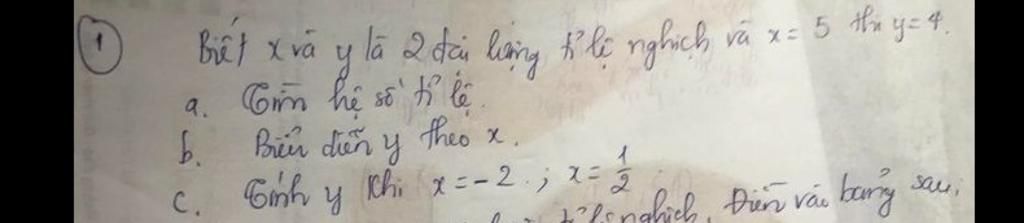 1 Biết x và y là 2 đại lượng tỉ lệ nghịch và x = 5 thì y = 4.
a. Tìm hệ số tỉ lệ.
b. Biểu diễn y theo x.
c. Tính y khi x = -2 ; x = 1/2
tỉ lệ nghịch. Điền vào bảng sau: